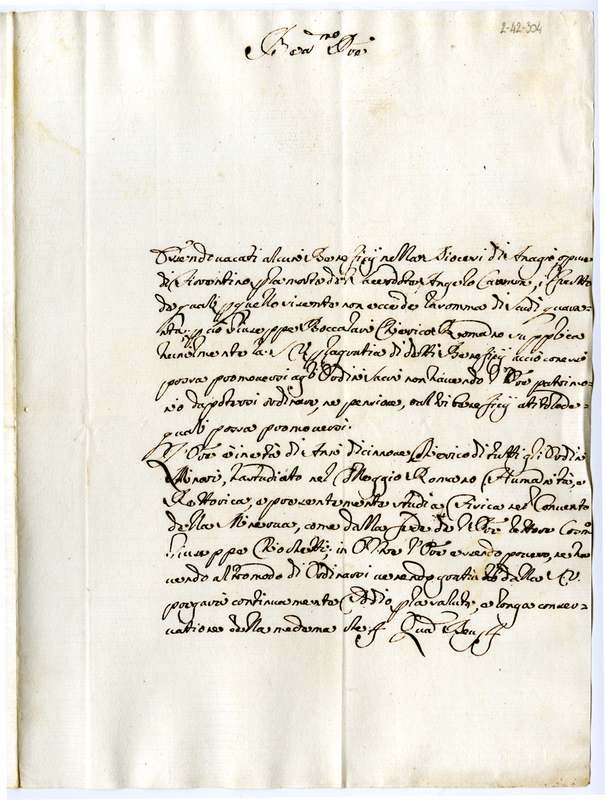 2-42-304
Bea.mo Pre
Essendo vacati alcuni Beneficij nella Diocesi di Anagni, o pure
di Fiorentino, p la morte del Sacerdote Angelo i frutti
de quali p quello si sente non eccede la somma di scudi quara=
nta; p ciò Giuseppe Boccalari Chierico Romano supplica
humilmente la S.V. p la gratia di detti Beneficij acciò con essi
possa promoversi agl'Ordini Sacri non havendo l'Ore patrimo=
nio da potersi ordinare, ne pensione, ò altri beneficij a titolo de=
quali possa promoversi.
L'Ore è in età di Anni dicinnove Chierico di tutti gli Ordini
Minori, ha studiato nel Colleggio Romano Humanità, e
Rettorica, e presentemente studia Fisica nel Convento
della Minerva, come dalla fede del Pre lettore
Giuseppe in Oltre l'Ore essendo povero, ne ha=
vendo altro modo di Ordinarsi venendo gratiato dalla S.V.
pregarà continuamente Iddio p la salute, e longa conser=
vatione della medema Che Quam Deus